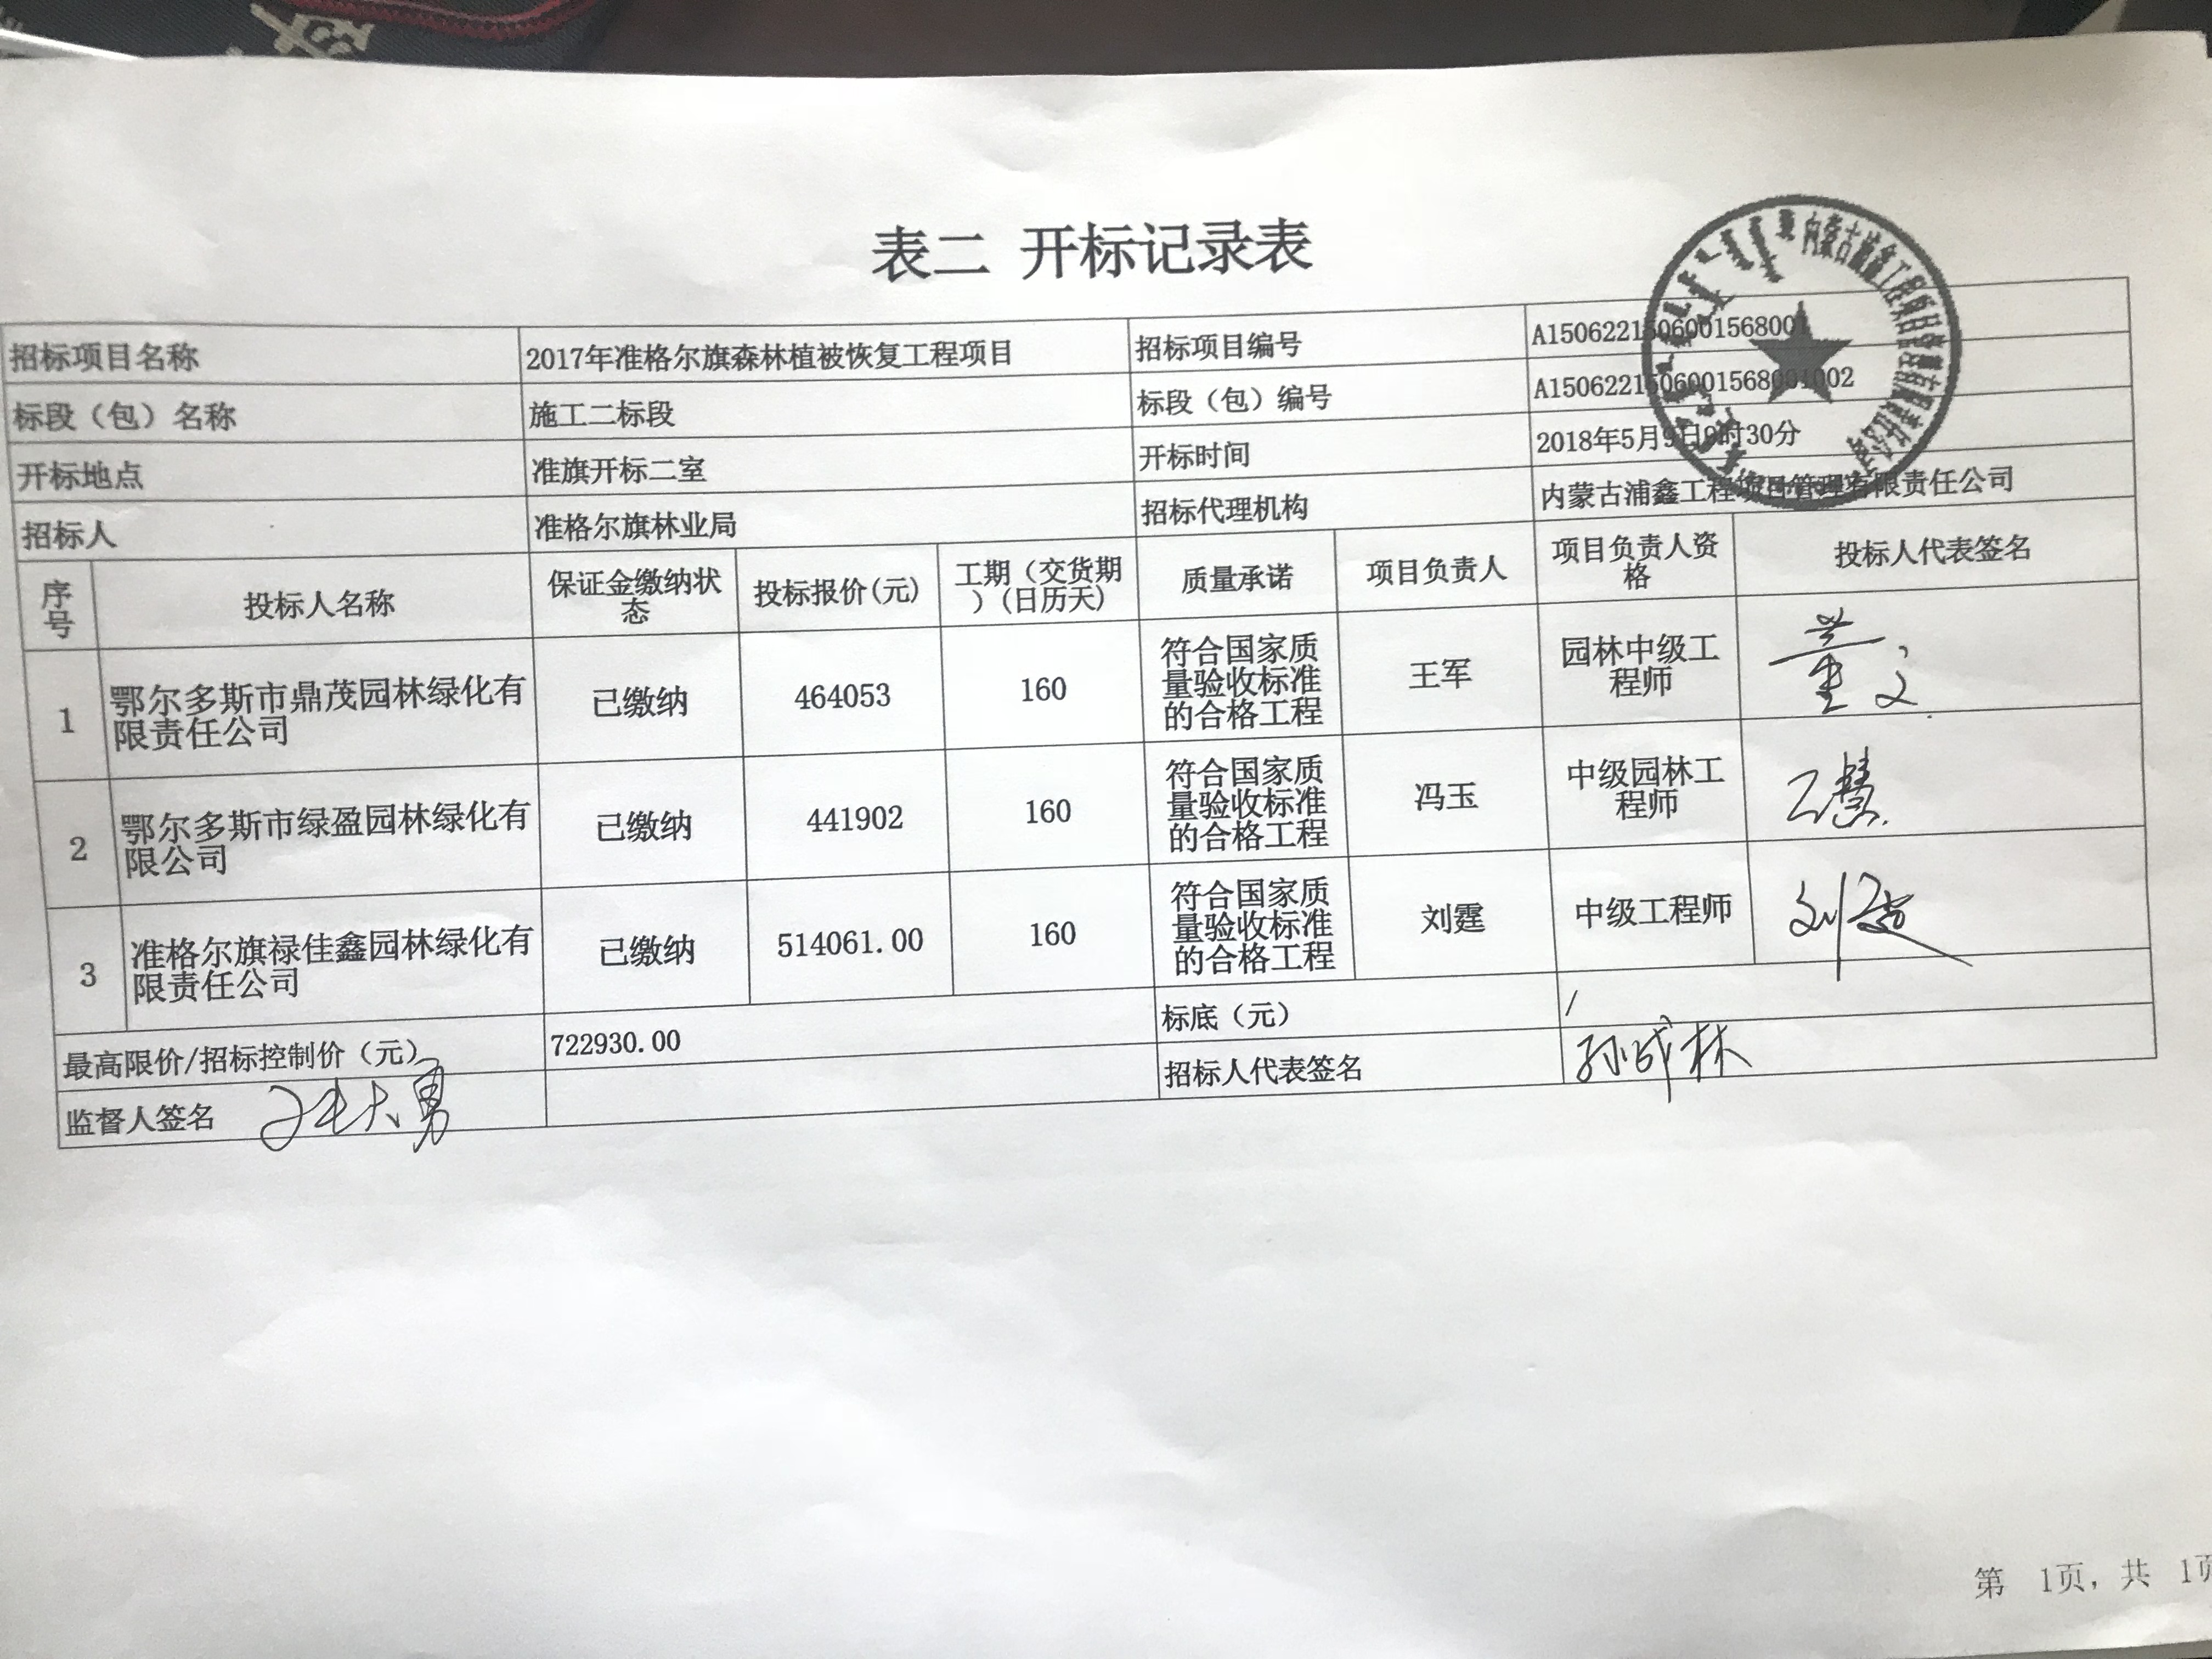 表二 开标记录表
招标项目名称 2017年准格尔旗森林植被恢复工程项目 招标项目编号 A1506221506001568001
标段（包）名称 施工二标段 标段（包）编号 A1506221506001568001002
开标地点 准旗开标二室 开标时间 2018年5月9日9时30分
招标人 准格尔旗林业局 招标代理机构 内蒙古浦鑫工程项目管理有限责任公司
序号 投标人名称 保证金缴纳状态 投标报价(元) 工期（交货期）(日历天) 质量承诺 项目负责人 项目负责人资格 投标人代表签名
1 鄂尔多斯市鼎茂园林绿化有限责任公司 已缴纳 464053 160 符合国家质量验收标准的合格工程 王军 园林中级工程师
2 鄂尔多斯市绿盈园林绿化有限公司 已缴纳 441902 160 符合国家质量验收标准的合格工程 冯玉 中级园林工程师
3 准格尔旗禄佳鑫园林绿化有限责任公司 已缴纳 514061.00 160 符合国家质量验收标准的合格工程 刘霆 中级工程师
最高限价/招标控制价（元） 722930.00 标底（元） /
监督人签名 招标人代表签名 孙成林
第 1页, 共 1页